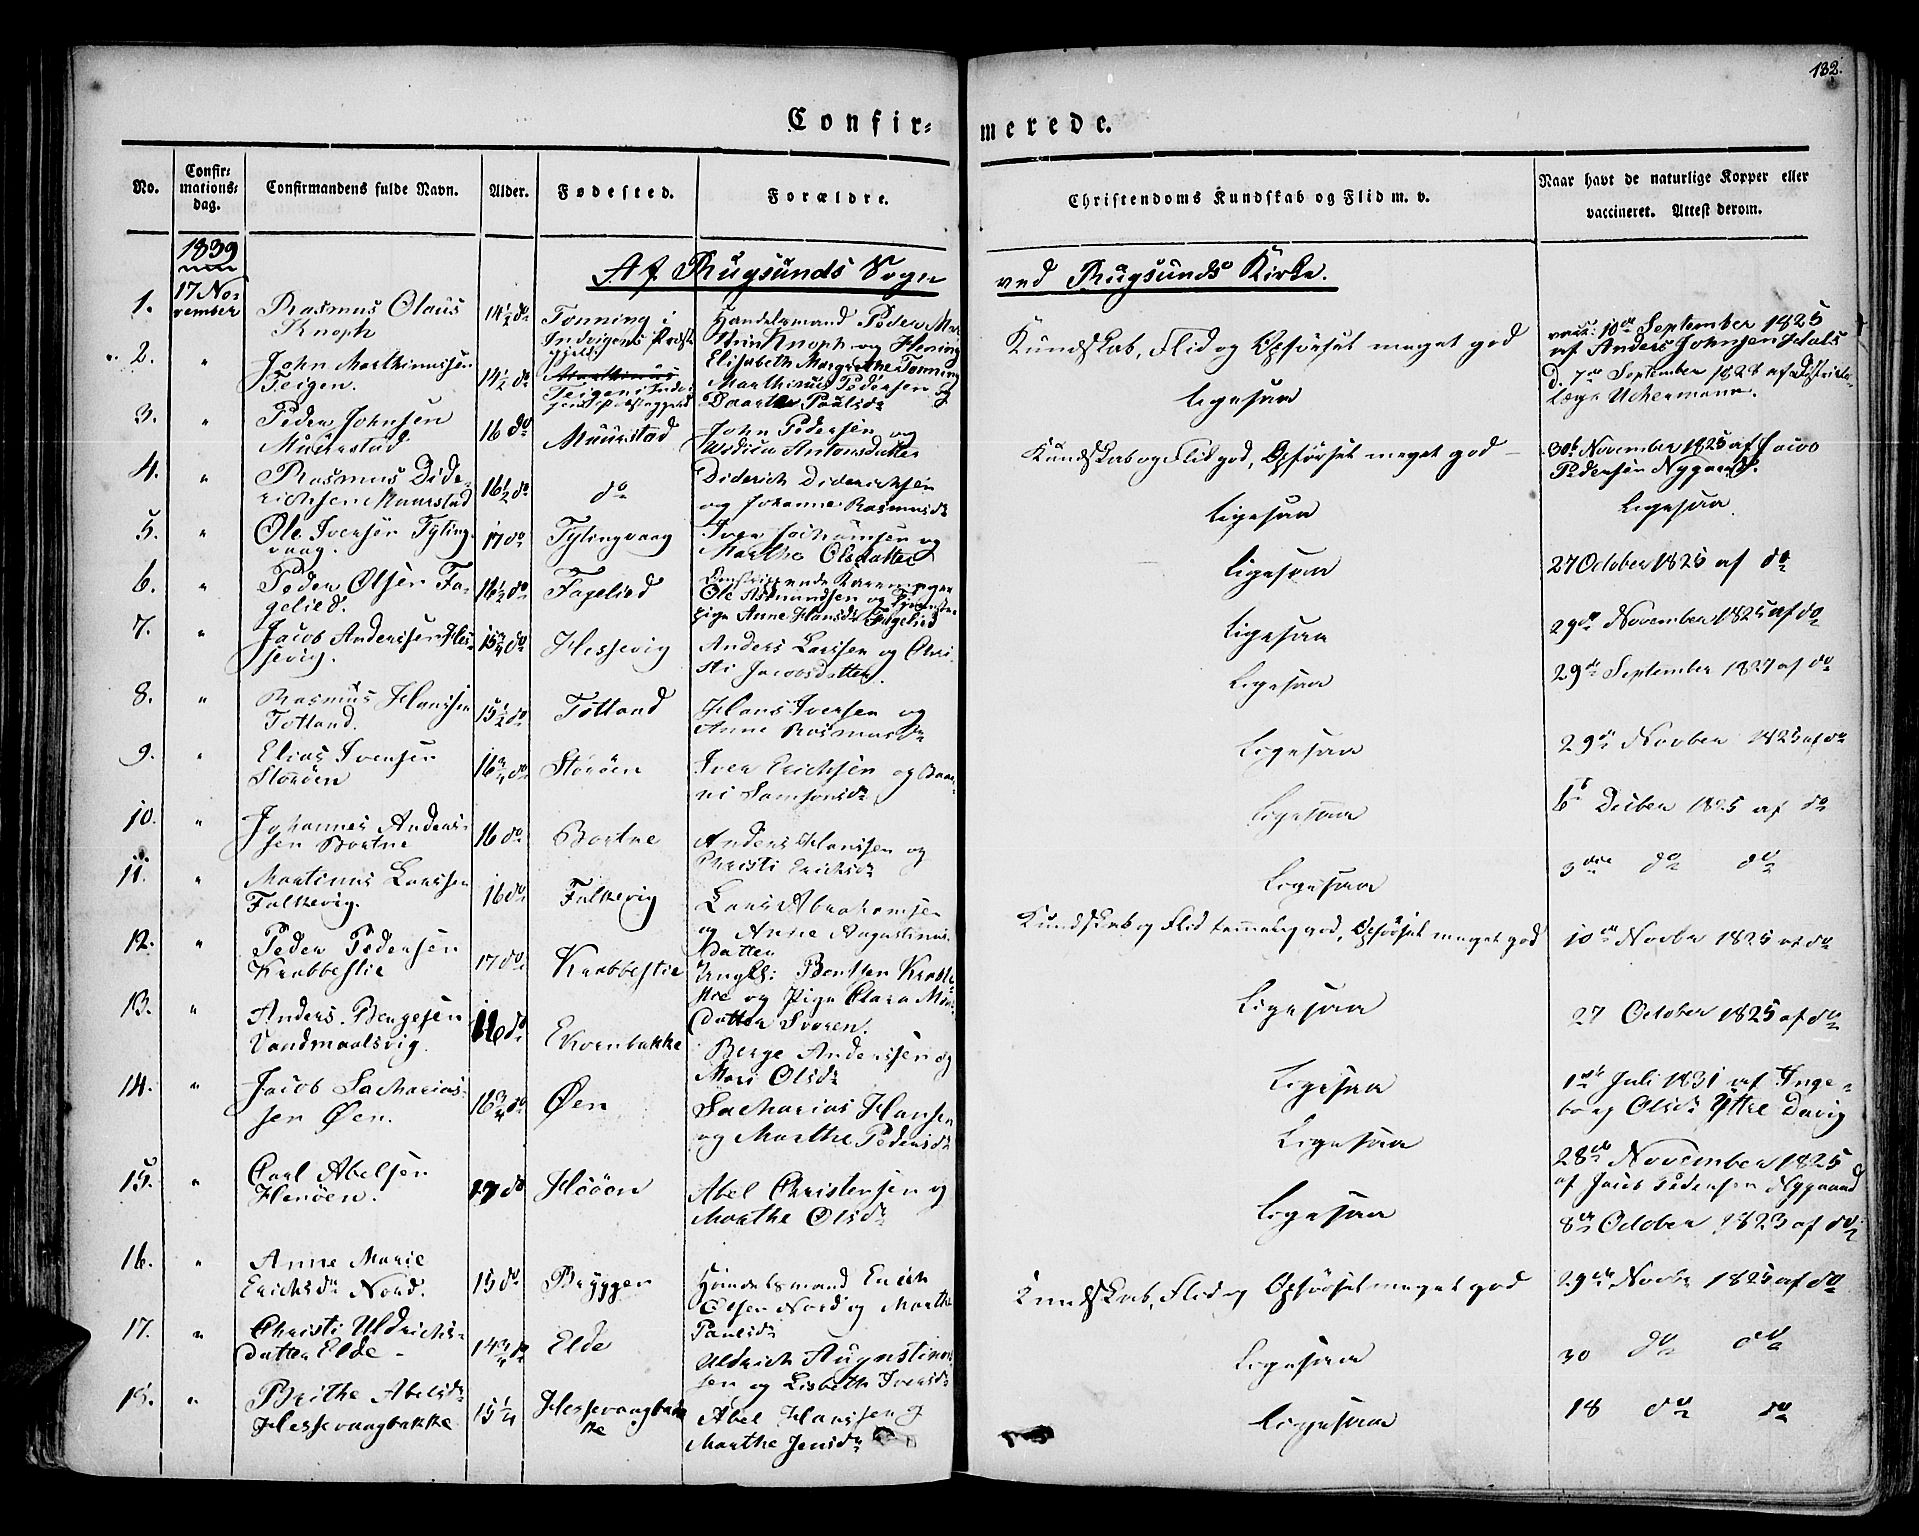 132.
Confir= merede.
No. Confir=mations=dag. Confirmandens fulde Navn. Alder. Fødested. Forældre. Christendoms Kundskab og Flid m. v. Naar havt de naturlige Kopper eller vaccineret. Attest derom.
1839
Af Rugsunds Sogn ved Rugsunds Kirke.
17 No=
vember
1. Rasmus Olaus
Knoph
14½ do
Tonning i
Indvigens Præste
gjeld
Handelsmand Peder
Knoph og
Elisabeth Margrethe Tonning
Kundskab, Flid og Opførsel meget god
vacc: 10de September 1825
af Anders Johnsen Hals
2. " John Marthinussen
Teigen.
14½ do
Marthinus
Teigen i
Marthinus Pedersen og
Daarthe Paulsdr
ligesaa
d. 7de September 1828 af Districts=
læge Uchermann.
3. " Peder Johnsen
Muurstad
16 do
Muurstad
John Pedersen og
Antonsdatter
Kundskab og Flid god, Opførsel meget god
30te November 1825 af Jacob
Pedersen Nygaard.
4. " Rasmus Dide=
richsen Maurstad
16½ do
do
Diderich Diderichsen
og Johanne Rasmusdr
ligesaa
Ligesaa
5. " Ole Iversen Tyting=
vaag.
17 do
Tytingvaag
Iver Jochumsen og
Marthe Olsdatter
ligesaa
27 October 1825 af do
6. " Peder Olsen Fa=
gelied.
16½ do
Fagelied
Ole Asmundsen og
Pige Anne Hansdr Fagelied
ligesaa
29de November 1825 af do
7. " Jacob Anderssen Hes=
sevig.
15¾ do
Hessevig
Anders Larssen og Chri=
sti Jacobsdatter.
Ligesaa
29de September 1827 af do
8. " Rasmus Hanssen
Totland.
15½ do
Totland
Hans Iversen og
Anne Rasmusdr
Ligesaa
29de Novber 1825 af do
9. " Elias Iversen
Storøen
16¾ do
Storøen
Iver Erichsen og
Samsonsdr
Ligesaa
6te Decber 1825 af do
10. " Johannes Anders=
sen Bortne
16 do
Bortne
Anders Hanssen og
Christi Erichsdr
Ligesaa
3die do do
11. " Martinus Larssen
Falkevig.
16 do
Falkevig
Lars Abrahamsen
og Anne Augustinus=
datter
Kundskab og Flid temmelig god, Opførsel meget god
10de Novbr 1825 af do
12. " Peder Pedersen
Krabbestie
17 do
Krabbestie
Ungk: Bentsen Krabbe=
stie og Pige Clara
datter Svoren.
Ligesaa
27 October 1825 af do
13. " Anders Bergesen
Vandmaalsvig.
16 do
Ekornbakke
Berge Anderssen og
Mari Olsdr
Ligesaa
1ste Juli 1831 af Inge=
borg Olsdr Ytre Davig
14. " Jacob Sacharias=
sen Øen.
16¾ do
Øen
Sacharias Hansen
og Marthe Pedersdr
Ligesaa
28de November 1825
af Jacob Pedersen Nygaard
15. " Carl Abelsen
Henøen.
17 do
Henøen
Abel Christensen og
Marthe Olsdr
Ligesaa
8de October 1823 af do
16. " Anne Marie
Erichsdr Nord.
15 do
Bryggen
Handelsmand Erich
Olsen Nord og Marthe
Paulsdr
Kundskab, Flid og Opførsel meget god
29de Novbr 1825 af do
17. " Christi Uldrichs=
datter Elde
14¾ do
Elde
Uldrich Augustinus=
sen og Lisbeth Iversdr
Ligesaa
30 do do
18. " Brithe Abelsdr
Hessevaagbakke
15¼
Hessevaagbak=
ke
Abel Hanssen og
Marthe Jensdr
Ligesaa
18 do do